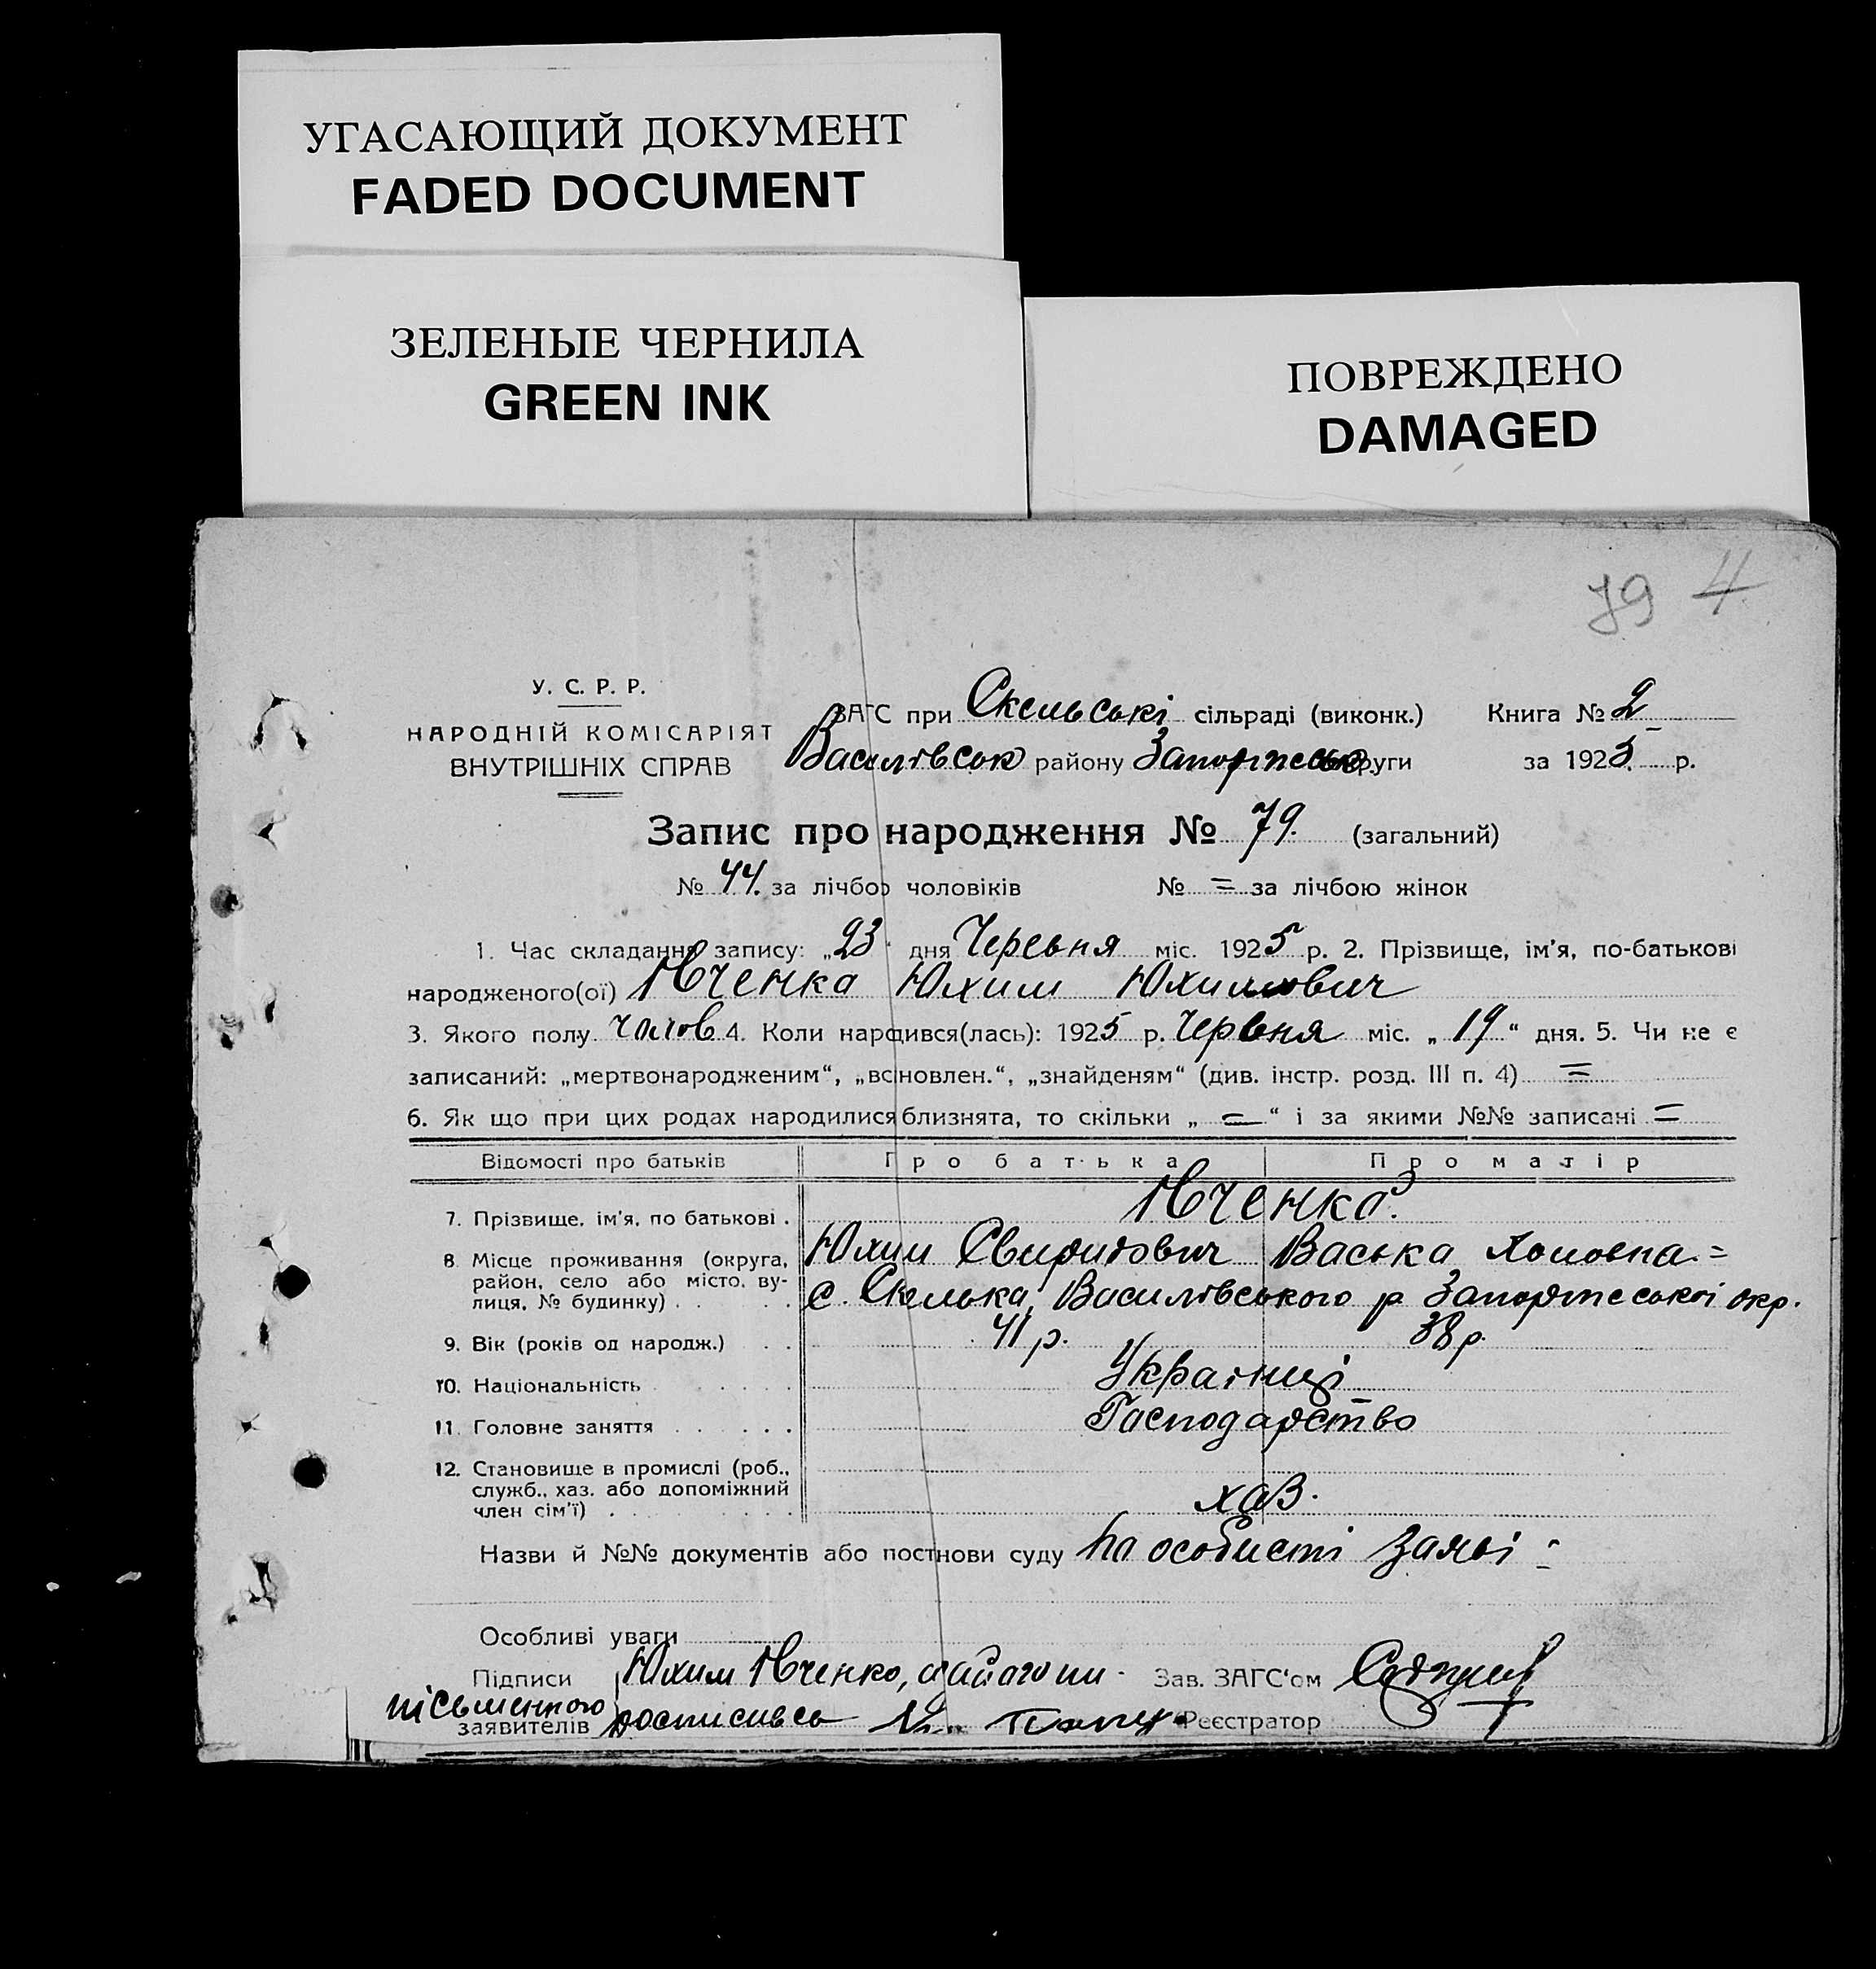 УГАСАЮЩИЙ ДОКУМЕНТ
FADED DOCUMENT
ЗЕЛЕНЫЕ ЧЕРНИЛА
GREEN INK
ПОВРЕЖДЕНО
DAMAGED
79 4
У. С. Р. Р.
НАРОДНІЙ КОМІСАРІЯТ
ВНУТРІШНІХ СПРАВ
ЗАГС при Скельські сільраді (виконк.) Книга № 2
Василівськ району Запоріжськ округи за 1925 р.
Запис про народження № 79. (загальний)
№ 44. за лічбою чоловіків № = за лічбою жінок
1. Час складання запису: „23“ дня Червня міс. 1925 р. 2. Прізвище, ім'я, по-батькові
народженого(ої) Ювченка Юхим Юхимович
3. Якого полу чолов 4. Коли народився(лась): 1925 р. Червня міс. „19“ дня. 5. Чи не є
записаний: „мертвонародженим“, „всиновлен.“, „знайденям“ (див. інстр. розд. III п. 4) =
6. Як що при цих родах народилися близнята, то скільки „=“ і за якими №№ записані =
Відомості про батьків Про батька Про матір
7. Прізвище, ім'я, по батькові . Ювченка.
Юхим Свиридович Васька =
8. Місце проживання (округа,
район, село або місто, ву-
лиця, № будинку) . . . . с. Скелька, Василівського р Запоріжської окр.
9. Вік (років од народж.) . . 41 р. 38 р.
10. Національність . . . . . Українці
11. Головне заняття . . . . . . Господарство
12. Становище в промислі (роб.,
служб., хаз. або допоміжний
член сім'ї) . . . . . . . . . хаз.
Назви й №№ документів або постнови суду По особисті заяві =
Особливі уваги
Підписи Юхим Ювченко, Зав. ЗАГС'ом
письменного
заявителів росписивсь Реєстратор